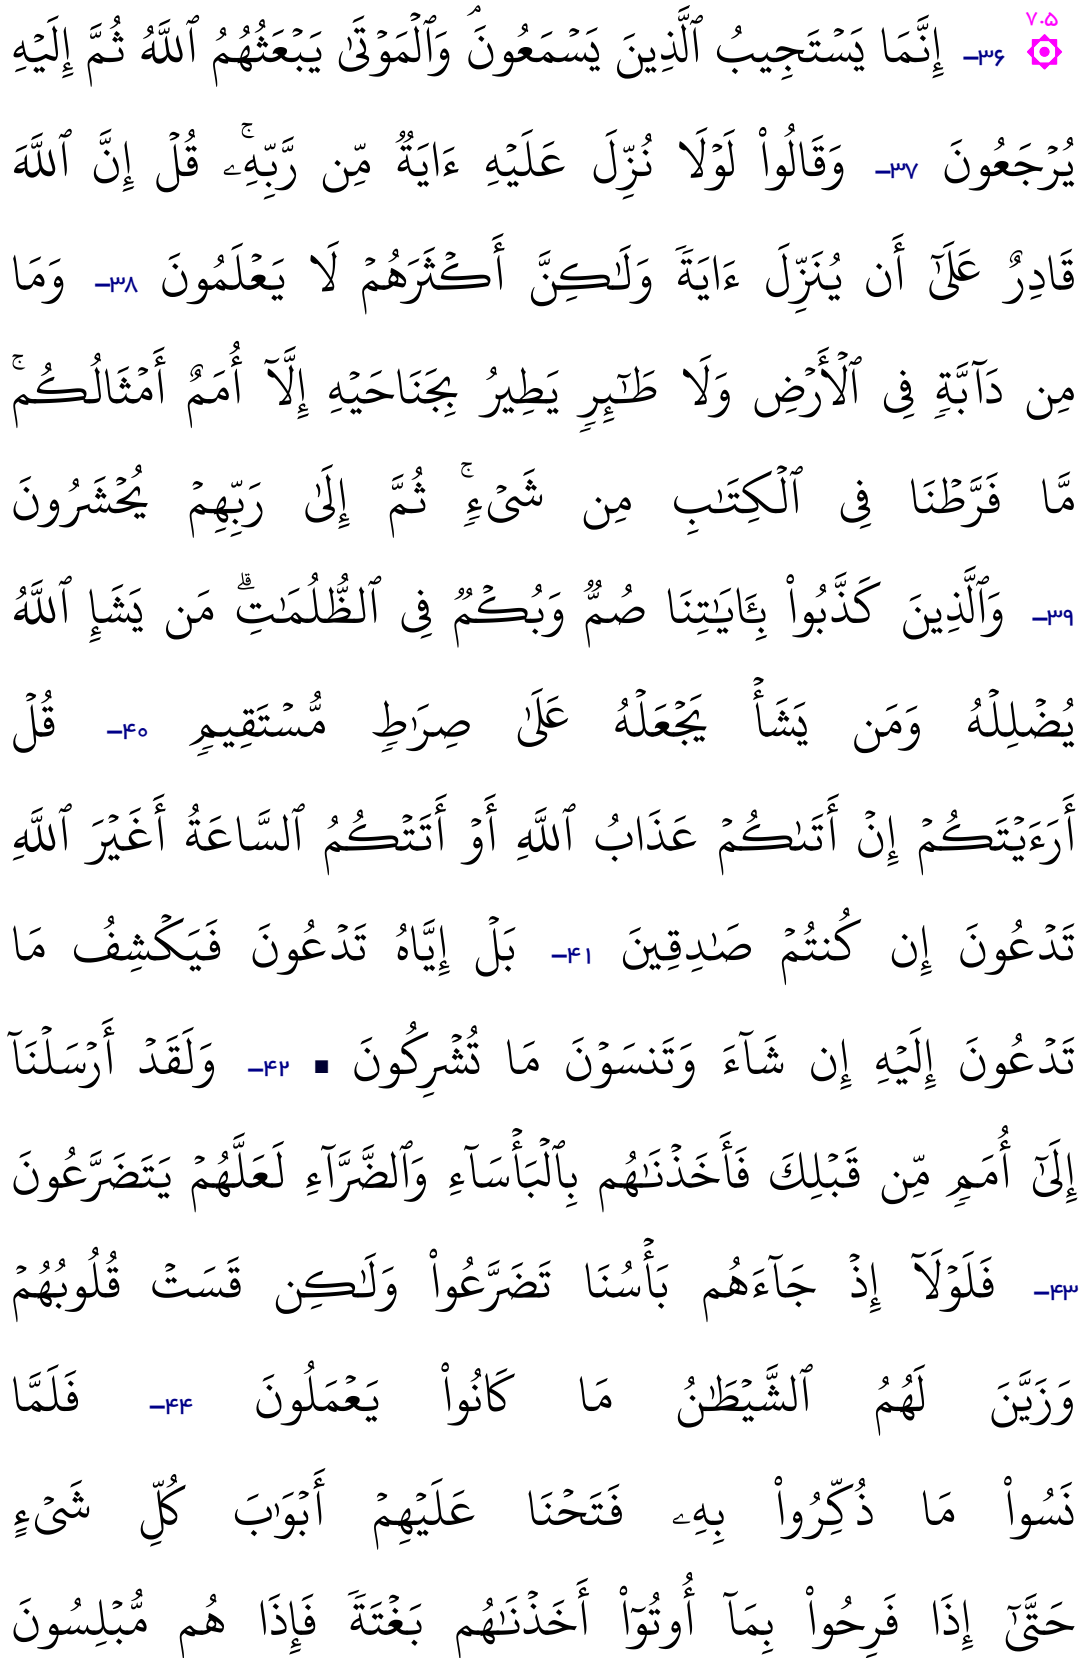 ۷.۵
۳۶- إِنَّمَا يَسۡتَجِيبُ ٱلَّذِينَ يَسۡمَعُونَۘ وَٱلۡمَوۡتَىٰ يَبۡعَثُهُمُ ٱللَّهُ ثُمَّ إِلَيۡهِ
يُرۡجَعُونَ ۳۷- وَقَالُواْ لَوۡلَا نُزِّلَ عَلَيۡهِ ءَايَةٞ مِّن رَّبِّهِۦۚ قُلۡ إِنَّ ٱللَّهَ
قَادِرٌ عَلَىٰٓ أَن يُنَزِّلَ ءَايَةٗ وَلَٰكِنَّ أَكۡثَرَهُمۡ لَا يَعۡلَمُونَ ۳۸- وَمَا
مِن دَآبَّةٖ فِي ٱلۡأَرۡضِ وَلَا طَٰٓئِرٖ يَطِيرُ بِجَنَاحَيۡهِ إِلَّآ أُمَمٌ أَمۡثَالُكُمۚ
مَّا فَرَّطۡنَا فِي ٱلۡكِتَٰبِ مِن شَيۡءٖۚ ثُمَّ إِلَىٰ رَبِّهِمۡ يُحۡشَرُونَ
۳۹- وَٱلَّذِينَ كَذَّبُواْ بِـَٔايَٰتِنَا صُمّٞ وَبُكۡمٞ فِي ٱلظُّلُمَٰتِۗ مَن يَشَإِ ٱللَّهُ
يُضۡلِلۡهُ وَمَن يَشَأۡ يَجۡعَلۡهُ عَلَىٰ صِرَٰطٖ مُّسۡتَقِيمٖ ۴۰- قُلۡ
أَرَءَيۡتَكُمۡ إِنۡ أَتَىٰكُمۡ عَذَابُ ٱللَّهِ أَوۡ أَتَتۡكُمُ ٱلسَّاعَةُ أَغَيۡرَ ٱللَّهِ
تَدۡعُونَ إِن كُنتُمۡ صَٰدِقِينَ ۴۱- بَلۡ إِيَّاهُ تَدۡعُونَ فَيَكۡشِفُ مَا
تَدۡعُونَ إِلَيۡهِ إِن شَآءَ وَتَنسَوۡنَ مَا تُشۡرِكُونَ ▪ ۴۲- وَلَقَدۡ أَرۡسَلۡنَآ
إِلَىٰٓ أُمَمٖ مِّن قَبۡلِكَ فَأَخَذۡنَٰهُم بِٱلۡبَأۡسَآءِ وَٱلضَّرَّآءِ لَعَلَّهُمۡ يَتَضَرَّعُونَ
۴۳- فَلَوۡلَآ إِذۡ جَآءَهُم بَأۡسُنَا تَضَرَّعُواْ وَلَٰكِن قَسَتۡ قُلُوبُهُمۡ
وَزَيَّنَ لَهُمُ ٱلشَّيۡطَٰنُ مَا كَانُواْ يَعۡمَلُونَ ۴۴- فَلَمَّا
نَسُواْ مَا ذُكِّرُواْ بِهِۦ فَتَحۡنَا عَلَيۡهِمۡ أَبۡوَٰبَ كُلِّ شَيۡءٍ
حَتَّىٰٓ إِذَا فَرِحُواْ بِمَآ أُوتُوٓاْ أَخَذۡنَٰهُم بَغۡتَةٗ فَإِذَا هُم مُّبۡلِسُونَ